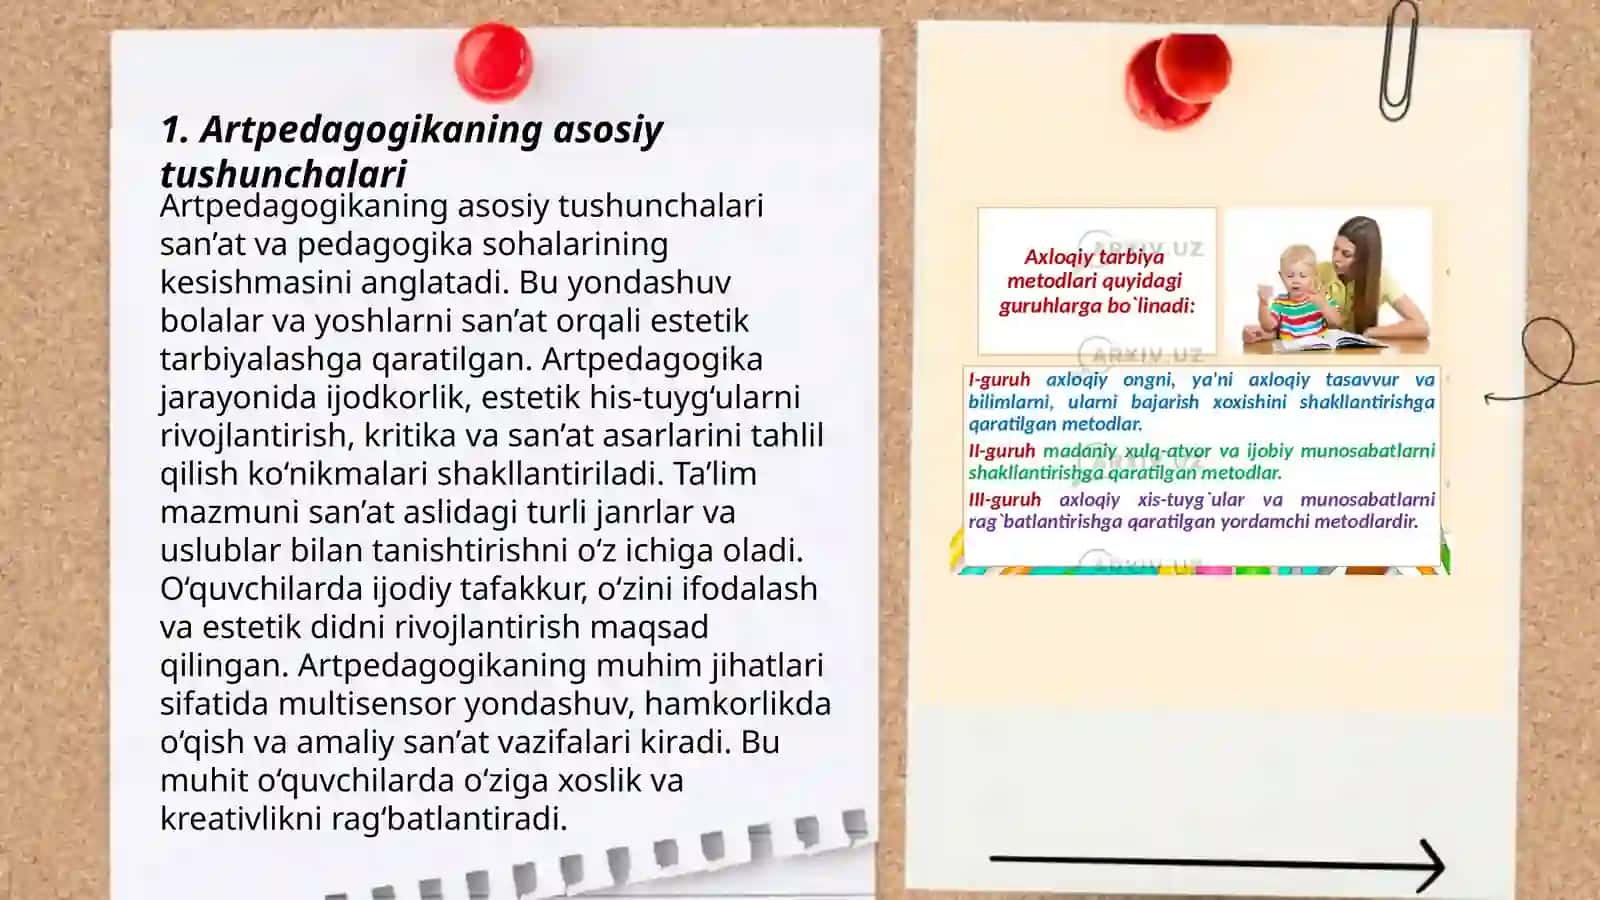 1. Artpedagogikaning asosiy
tushunchalari
Artpedagogikaning asosiy tushunchalari
san’at va pedagogika sohalarining
kesishmasini anglatadi. Bu yondashuv
bolalar va yoshlarni san’at orqali estetik
tarbiyalashga qaratilgan. Artpedagogika
jarayonida ijodkorlik, estetik his-tuyg‘ularni
rivojlantirish, kritika va san’at asarlarini tahlil
qilish ko‘nikmalari shakllantiriladi. Ta’lim
mazmuni san’at aslidagi turli janrlar va
uslublar bilan tanishtirishni o‘z ichiga oladi.
O‘quvchilarda ijodiy tafakkur, o‘zini ifodalash
va estetik didni rivojlantirish maqsad
qilingan. Artpedagogikaning muhim jihatlari
sifatida multisensor yondashuv, hamkorlikda
o‘qish va amaliy san’at vazifalari kiradi. Bu
muhit o‘quvchilarda o‘ziga xoslik va
kreativlikni rag‘batlantiradi.
ARXIV.UZ
Axloqiy tarbiya
metodlari quyidagi
guruhlarga bo`linadi:
ARXIV.UZ
I-guruh axloqiy ongni, ya'ni axloqiy tasavvur va
bilimlarni, ularni bajarish xoxishini shakllantirishga
qaratilgan metodlar.
II-guruh madaniy xulq-atvor va ijobiy munosabatlarni
shakllantirishga qaratilgan metodlar.
ARXIV.UZ
III-guruh axloqiy xis-tuyg`ular va munosabatlarni
rag`batlantirishga qaratilgan yordamchi metodlardir.
ARXIV.UZ